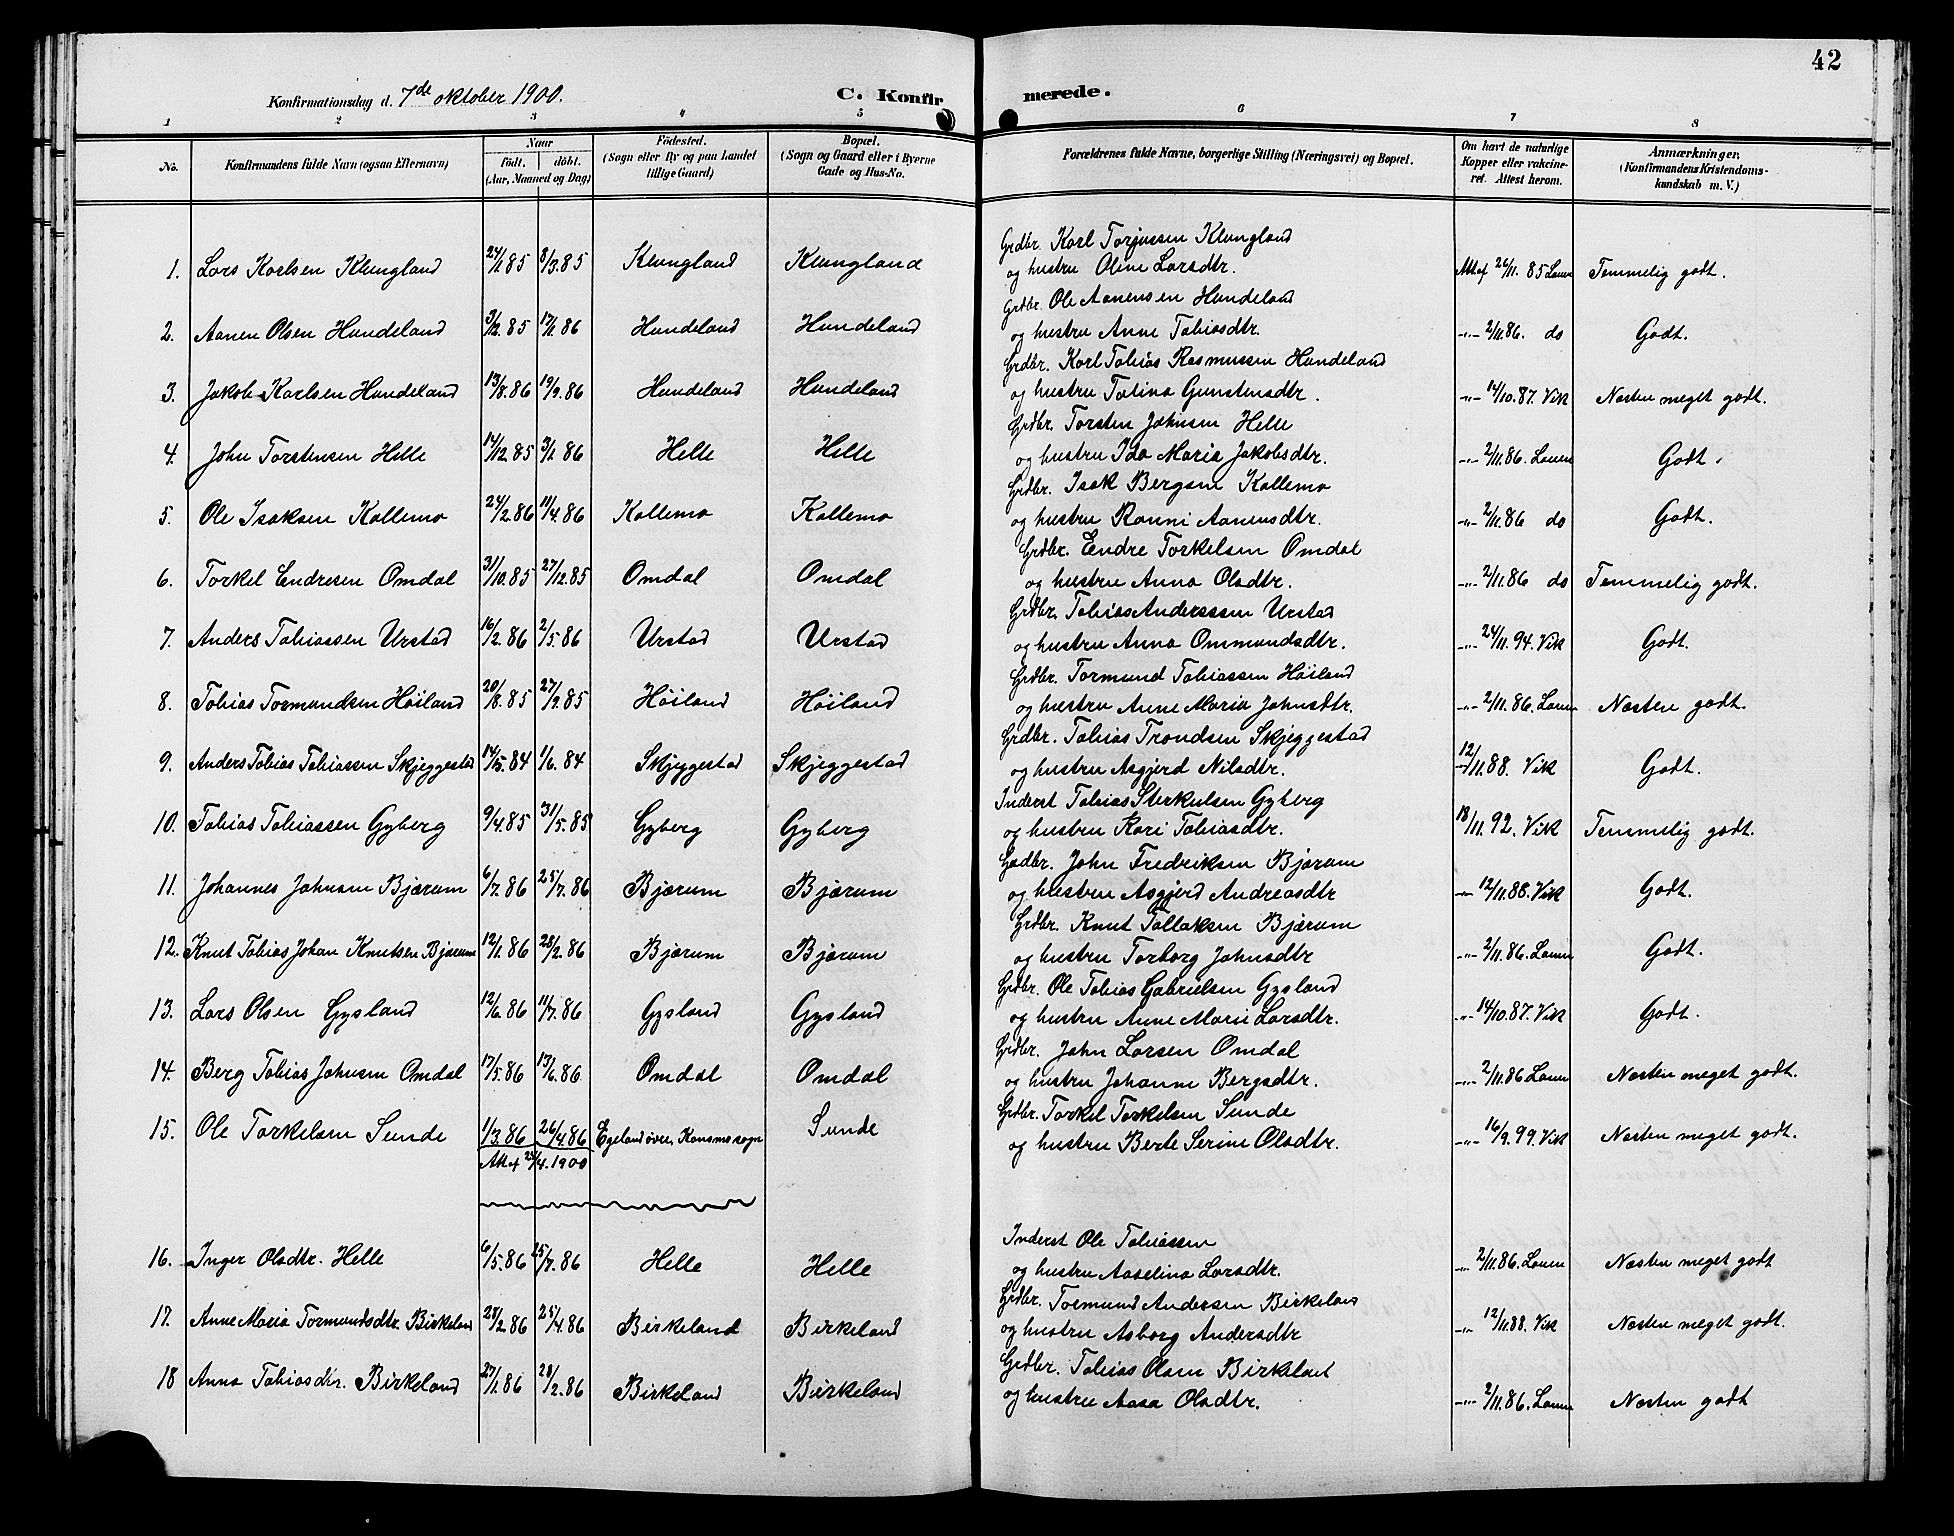 42
Konfirmationsdag d. 7de oktober 1900.
C. Konfir merede.
1 2 3 4 5 6 7 8
No. Konfirmandens fulde Navn (ogsaa Efternavn)
Naar
født. døbt.
(Aar, Maaned og Dag)
Födested.
(Sogn eller By og paa Landet
tillige Gaard)
Bopæl.
(Sogn og Gaard eller i Byerne
Gade og Hus-No.
Forældrenes fulde Navne, borgerlige Stilling (Næringsvei) og Bopæl.
Om havt de naturlige
Kopper eller vakcine-
ret. Attest herom.
Anmærkninger.
(Konfirmandens Kristendoms-
kundskab m. V.)
Grdbr. Karl Torjussen Klungland
1. Lars Karlsen Klungland 24/1.85 8/3.85 Klungland Klungland og hustru Oline Larsdtr. Att af 26/11. 85 Lauen Temmelig godt.
Grdbr. Ole Aanensen Hundeland
2. Aanen Olsen Hundeland 3/12.85 17/1.86 Hundeland Hundeland og hustru Anne Tobiasdtr. -"- 2/11.86. do Godt.
Grdbr. Karl Tobias Rasmussen Hundeland
3. Jakob Karlsen Hundeland 13/8.86 19/9.86 Hundeland Hundeland og hustru Talina Gunstensdtr. -"- 14/10.87. Vik Næsten meget godt.
Grdbr. Torsten Johnsen Helle
4. John Torstensen Helle 14/12.85 3/1.86 Helle Helle og hustru Ida Maria Jakobsdtr. -"- 2/11.86. Lauen Godt.
Grdbr. Isak Bergsen Kallemo
5. Ole Isaksen Kallemo 24/2.86 11/4.86 Kallemo Kallemo og hustru Ranni Aanensdtr. -"- 2/11.86 do Godt.
Grdbr. Endre Torkelsen Omdal
6. Torkel Endresen Omdal 31/10.85 27/12.85 Omdal Omdal og hustru Anna Olsdtr. -"- 2/11.86 do Temmelig godt.
Grdbr. Tobias Anderssen Urstad
7. Anders Tobiassen Urstad 16/2.86 2/5.86 Urstad Urstad og hustru Anna Ommundsdtr. -"- 24/11.94. Vik Godt.
Grdbr. Tormund Tobiassen Høiland
8. Tobias Tormundsen Høiland 20/8.85 27/9.85 Høiland Høiland og hustru Anne Maria Johnsdtr. -"- 2/11.86. Lauen Næsten godt.
Grdbr. Tobias Trondsen Skjeggestad
9. Anders Tobias Tobiassen Skjeggestad 14/5.84 1/6.84 Skjeggestad Skjeggestad og hustru Asgjerd Nilsdtr. 12/11.88. Vik Godt.
Inderst Tobias Sterkulsen Gyberg
10. Tobias Tobiassen Gyberg 9/4.85 31/5.85 Gyberg Gyberg og hustru Kari Tobiasdtr. 18/11.92. Vik Temmelig godt.
Grdbr. John Fredriksen Bjærum
11. Johannes Johnsen Bjærum 6/7.86 25/7.86 Bjærum Bjærum og hustru Asgjerd Andreasdtr -"- 12/11.88. Vik Godt.
Grdbr. Knut Tallaksen Bjærum
12. Knut Tobias Johan Knutsen Bjærum 12/1.86 28/2.86 Bjærum Bjærum og hustru Torborg Johnsdtr -"- 2/11.86. Lauen Godt.
Grdbr. Ole Tobias Gabrielsen Gysland
13. Lars Olsen Gysland 12/6.86 11/7.86 Gysland Gysland og hustru Anne Marie Larsdtr. -"- 14/10.87. Vik Godt.
Grdbr. John Larsen Omdal
14. Berg Tobias Johnsen Omdal 17/5.86 13/6.86 Omdal Omdal og hustru Johanne Bergsdtr. -"- 2/11.86 Lauen Næsten meget godt.
Grdbr. Torkel Torkelsen Sunde
15. Ole Torkelsen Sunde 1/3.86 26/4.86 Egeland øvre, Konsmo sogn Sunde og hustru Berte Serine Olsdtr. -"- 16/9.99. Vik Næsten meget godt.
Att af 25/4.1900
Inderst Ole Tobiassen
16. Inger Olsdtr. Helle 6/5.86 25/7.86 Helle Helle og hustru Aaselina Larsdtr. -"- 2/11.86. Lauen Næsten meget godt
Grdbr. Tormund Andersen Birkeland
17. Anne Maria Tormundsdtr. Birkeland 28/2.86 25/4.86 Birkeland Birkeland og hustru Asborg Andersdtr -"- 12/11.88. Vik Næsten meget godt.
Grdbr. Tobias Olsen Birkeland
18 Anna Tobiasdtr. Birkeland 27/1.86 28/2.86 Birkeland Birkeland og hustru Aasa Olsdtr. -"- 2/11.86. Lauen Næsten godt